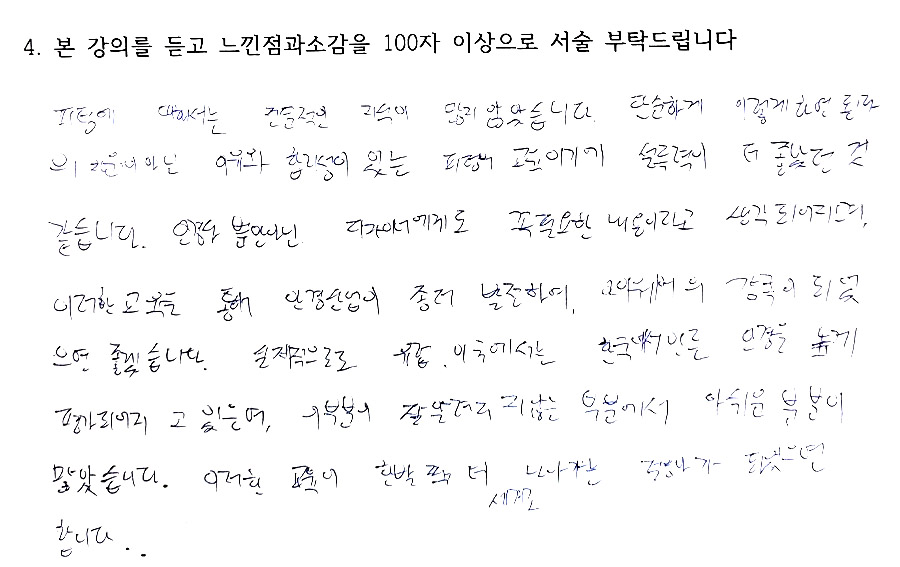 4. 본 강의를 듣고 느낀점과소감을 100자 이상으로 서술 부탁드립니다
피팅에 대해서는 전문적인 지식이 많지 않았습니다. 단순하게 이렇게 하면 된다
의 교육이 아닌 이유와 합리성이 있는 피팅의 교육이기에 설득력이 더 좋았던 것
같습니다. 안경사 뿐만아닌 디자이너에게도 꼭필요한 내용이라고 생각 되어지며,
이러한 교육을 통해 안경산업이 좀더 발전하여, 아이웨어의 강국이 되었
으면 좋겠습니다. 실제적으로도 유럽, 미국에서는 한국에서 만든 안경을 높게
평가되어지고 있는데, 이부분이 잘 알려지지않는 부분에서 아쉬운 부분이
많았습니다. 이러한 교육이 한발 더 세계로 나아가는 되었으면
합니다..